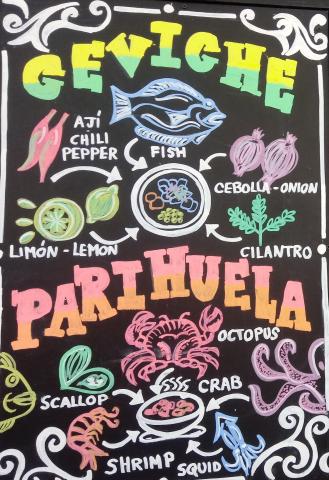 CEVICHE
AJÍ
CHILI
PEPPER
FISH
CEBOLLA - ONION
LIMÓN - LEMON
CILANTRO
PARIHUELA
OCTOPUS
SCALLOP
CRAB
SHRIMP
SQUID